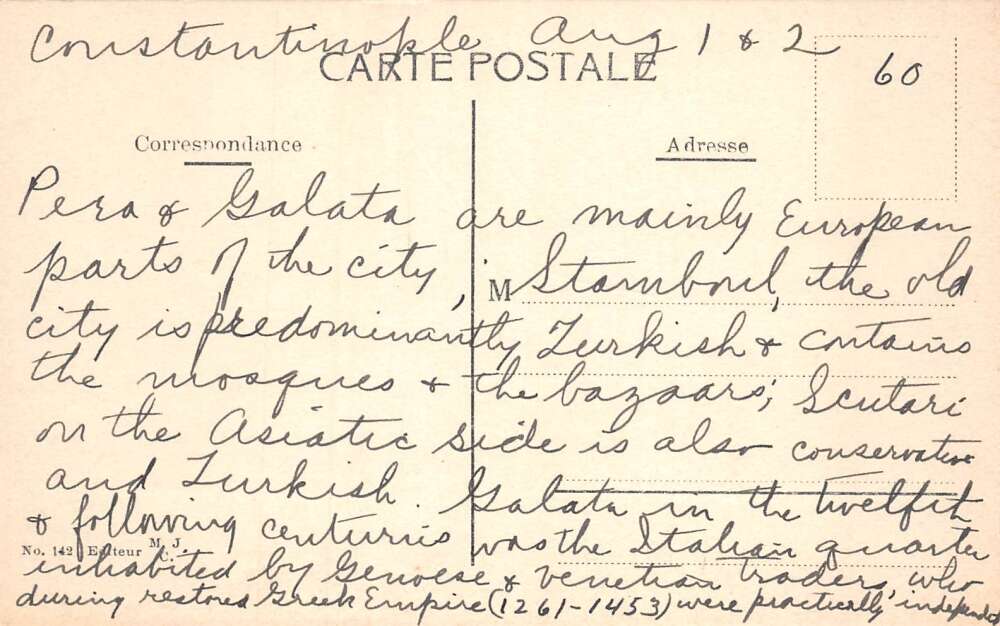 Constantinople Aug 1 & 2
CARTE POSTALE
60
Correspondance
Adresse
Pera & Galata are mainly European
parts of the city; Stamboul, the old
M
city is predominantly Turkish & contains
the mosques & the bazaars; Scutari
on the Asiatic side is also conservative
and Turkish. Galata in the twelfth
& following centuries was the Italian quarter
No. 142 Editeur M. J. C.
inhabited by Genoese & Venetian traders, who
during restored Greek Empire (1261-1453) were practically independent